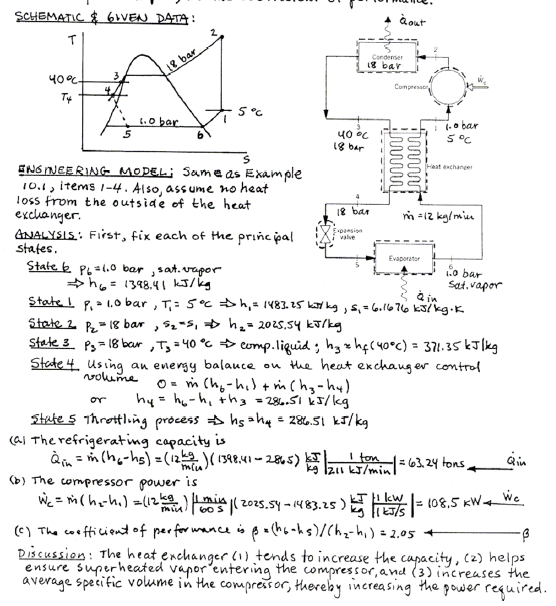 SCHEMATIC & GIVEN DATA:
T
2
18 bar
40°C
3
4
T4
1
5°C
1.0 bar
5
6
S
Q̇out
Condenser
18 bar
2
Compressor
Ẇc
3
1
40°C
18 bar
1.0 bar
5°C
Heat exchanger
4
18 bar
ṁ = 12 kg/min
Expansion
valve
Evaporator
5
6
1.0 bar
Sat. vapor
Q̇in
ENGINEERING MODEL: Same as Example
10.1, items 1-4. Also, assume no heat
loss from the outside of the heat
exchanger.
ANALYSIS: First, fix each of the principal
states.
State 6 P6 = 1.0 bar, sat. vapor
⇒ h6 = 1398.41 kJ/kg
State 1 P1 = 1.0 bar, T1 = 5°C ⇒ h1 = 1483.25 kJ/kg, s1 = 6.1676 kJ/kg·K
State 2 P2 = 18 bar, s2 = s1 ⇒ h2 = 2025.54 kJ/kg
State 3 P3 = 18 bar, T3 = 40°C ⇒ comp. liquid; h3 ≈ hf(40°C) = 371.35 kJ/kg
State 4 Using an energy balance on the heat exchanger control
volume 0 = ṁ(h6-h1) + ṁ(h3-h4)
or h4 = h6-h1 + h3 = 286.51 kJ/kg
State 5 Throttling process ⇒ h5 = h4 = 286.51 kJ/kg
(a) The refrigerating capacity is
Q̇in = ṁ(h6-h5) = (12 kg/min)(1398.41 - 286.5) kJ/kg |1 ton/211 kJ/min| = 63.24 tons ← Q̇in
(b) The compressor power is
Ẇc = ṁ(h2-h1) = (12 kg/min)|1 min/60 s|(2025.54 - 1483.25) kJ/kg |1 kW/1 kJ/s| = 108.5 kW ← Ẇc
(c) The coefficient of performance is β = (h6-h5)/(h2-h1) = 2.05 ← β
Discussion: The heat exchanger (1) tends to increase the capacity, (2) helps
ensure superheated vapor entering the compressor, and (3) increases the
average specific volume in the compressor, thereby increasing the power required.